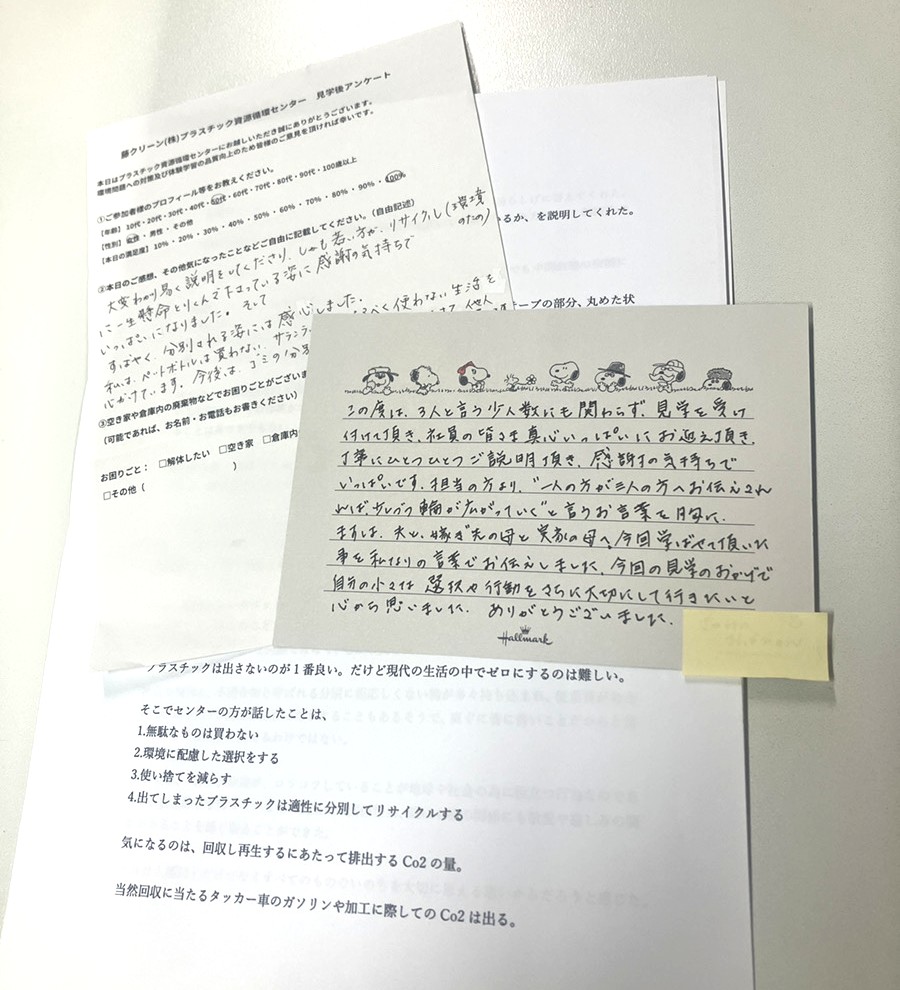 藤クリーン(株)プラスチック資源循環センター 見学後アンケート
本日はプラスチック資源循環センターにお越しいただき誠にありがとうございます。
環境問題への対策及び体験学習の品質向上のため皆様のご意見を頂ければ幸いです。
①ご参加者様のプロフィール等をお教えください。
【年齢】10代・20代・30代・40代・50代・60代・70代・80代・90代・100歳以上
【性別】女性・男性・その他
【本日の満足度】10%・20%・30%・40%・50%・60%・70%・80%・90%・100%
②本日のご感想、その他気になったことなどご自由に記載してください。(自由記述)
大変わかり易く説明をしてくださり、しかも若い方が、リサイクル(環境のため)
に一生懸命とりくんで下さっている姿に感謝の気持ちで
いっぱいになりました。そして
すばやく、分別される姿には感心しました。
私は、ペットボトルは買わない、サランラ
べく使わない生活を
心がけています。今後は、ゴミの分別
他人
③空き家や倉庫内の廃棄物などでお困りごとがございま
(可能であれば、お名前・お電話もお書きください)
お困りごと: □解体したい □空き家 □倉庫内
□その他( )
いるか、を説明してくれた。
テープの部分、丸めた状
この度は、3人と言う少人数にも関わらず、見学を受け
付けて頂き、社員の皆さま真心いっぱいにお迎え頂き、
丁寧にひとつひとつご説明頂き、感謝の気持ちで
いっぱいです。担当の方より、"一人の方が三人の方へお伝えされ
れば、少しづつ輪が広がっていく"と言うお言葉を胸に、
まずは、夫と、嫁ぎ先の母と実家の母へ、今回学ばせて頂いた
事を私なりの言葉でお伝えしました。今回の見学のおかげで
自分の小さな選択や行動をさらに大切にして行きたいと
心から思いました。ありがとうございました。
Hallmark
プラスチックは出さないのが1番良い。だけど現代の生活の中でゼロにするのは難しい。
そこでセンターの方が話したことは、
1.無駄なものは買わない
2.環境に配慮した選択をする
3.使い捨てを減らす
4.出てしまったプラスチックは適性に分別してリサイクルする
気になるのは、回収し再生するにあたって排出するCo2の量。
当然回収に当たるタッカー車のガソリンや加工に際してのCo2は出る。